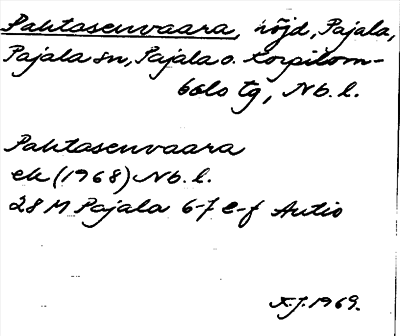 Pahtasenvaara, höjd, Pajala,
Pajala sn, Pajala o. Korpilom-
bolo tg, Nb. l.
Pahtasenvaara
ek (1968) Nb. l.
28 M Pajala 6-7 e-f Autio
K.J. 1969.